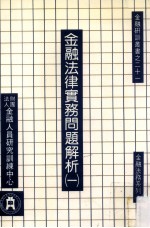 金融研訓叢書之二十一
金融法律實務問題解析(一)
財團法人金融人員研究訓練中心